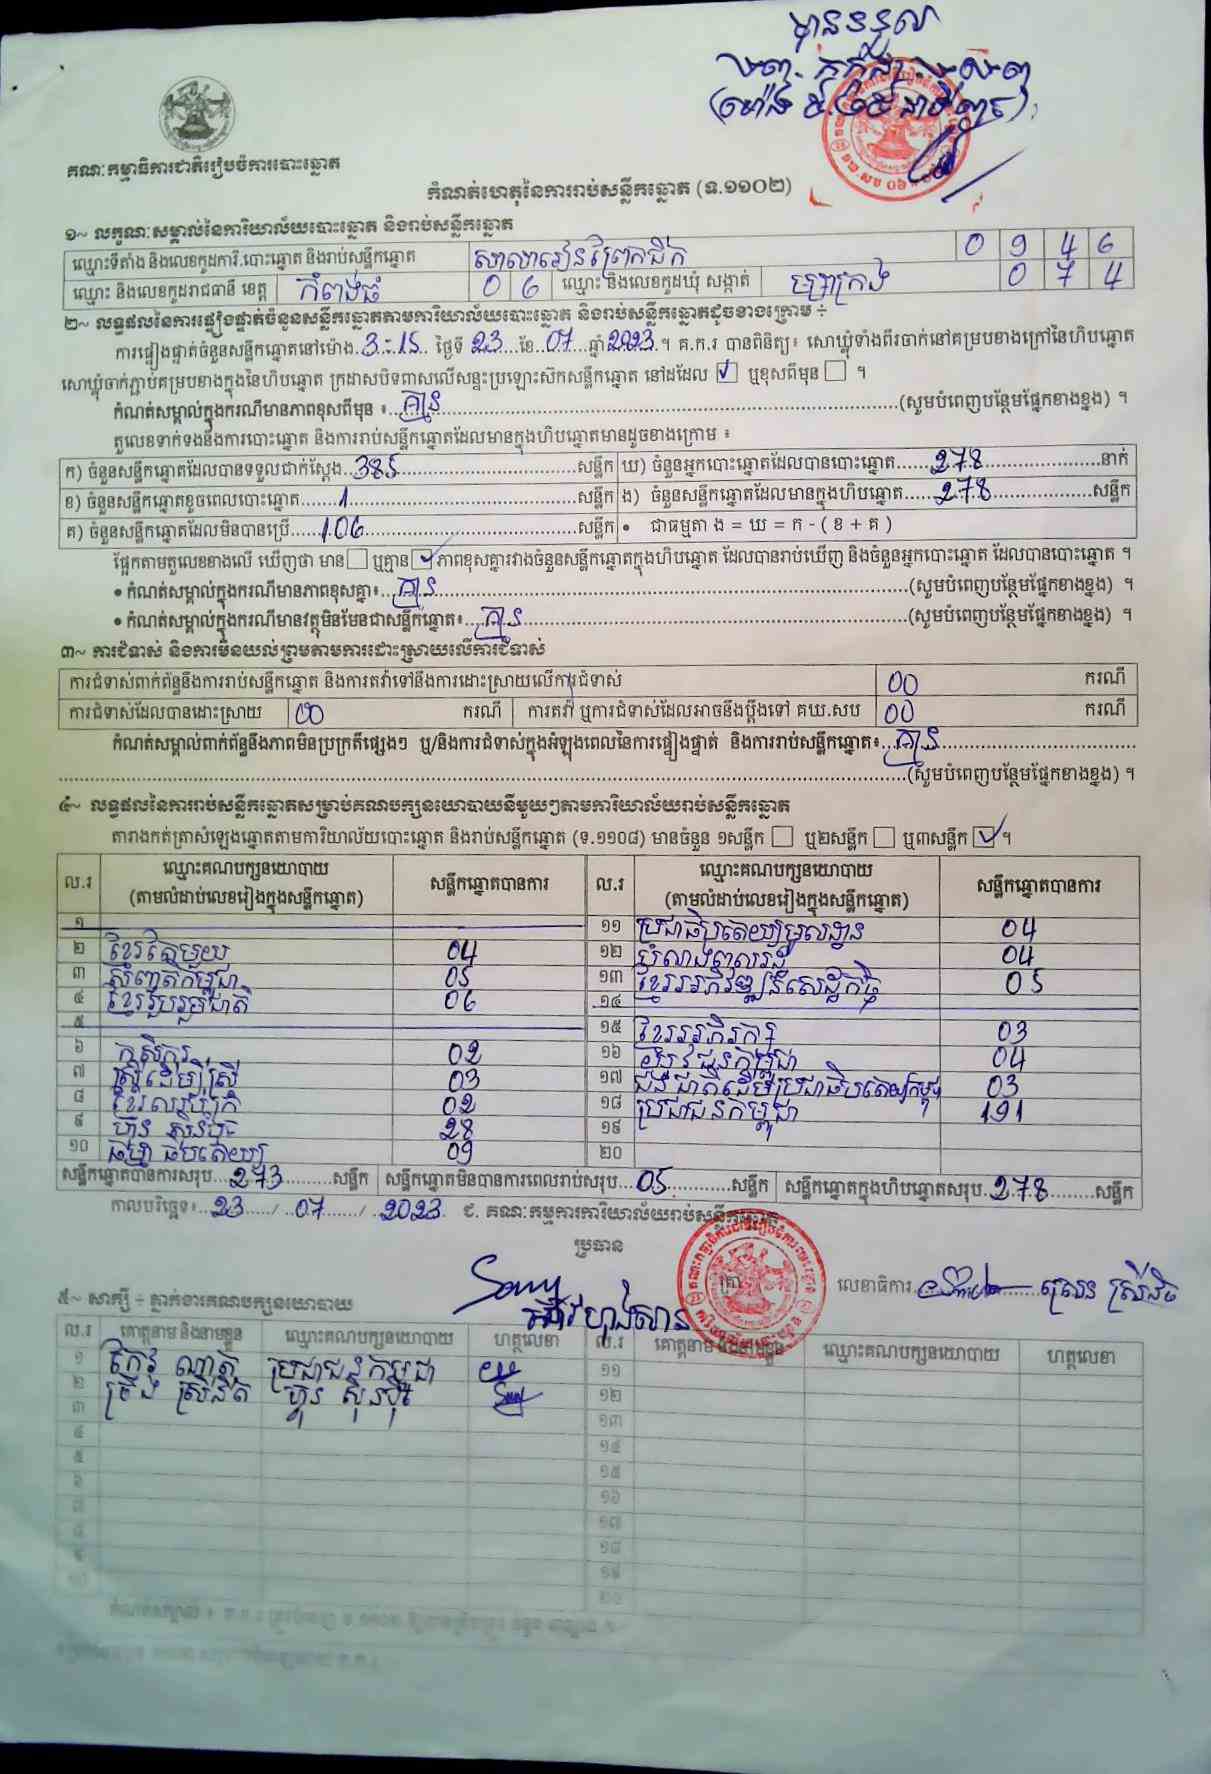 បានទទួល
គណៈកម្មាធិការជាតិរៀបចំការបោះឆ្នោត
កំណត់ហេតុនៃការរាប់សន្លឹកឆ្នោត (ទ.១១០២)
១~ លក្ខណៈសម្គាល់នៃការិយាល័យបោះឆ្នោត និងរាប់សន្លឹកឆ្នោត
ឈ្មោះទីតាំង និងលេខកូដការិ.បោះឆ្នោត និងរាប់សន្លឹកឆ្នោត សាលារៀនព្រែកជីក 0 9 4 6
ឈ្មោះ និងលេខកូដរាជធានី ខេត្ត កំពង់ធំ 0 6 ឈ្មោះ និងលេខកូដឃុំ សង្កាត់ ម្សាក្រង 0 7 4
២~ លទ្ធផលនៃការផ្ទៀងផ្ទាត់ចំនួនសន្លឹកឆ្នោតតាមការិយាល័យបោះឆ្នោត និងរាប់សន្លឹកឆ្នោតដូចខាងក្រោម ÷
ការផ្ទៀងផ្ទាត់ចំនួនសន្លឹកឆ្នោតនៅម៉ោង 3:15 ថ្ងៃទី 23 ខែ 07 ឆ្នាំ 2023 ។ គ.ក.រ បានពិនិត្យ៖ សោឃ្លុំទាំងពីរចាក់នៅគម្របខាងក្រៅនៃហិបឆ្នោត
សោឃ្លុំចាក់ភ្ជាប់គម្របខាងក្នុងនៃហិបឆ្នោត ក្រដាសបិទពាសលើសន្ទះប្រឡោះស៊កសន្លឹកឆ្នោត នៅដដែល ☑ ឬខុសពីមុន ☐ ។
កំណត់សម្គាល់ក្នុងករណីមានភាពខុសពីមុន ៖ គ្មាន (សូមបំពេញបន្ថែមផ្នែកខាងខ្នង) ។
តួលេខទាក់ទងនឹងការបោះឆ្នោត និងការរាប់សន្លឹកឆ្នោតដែលមានក្នុងហិបឆ្នោតមានដូចខាងក្រោម ៖
ក) ចំនួនសន្លឹកឆ្នោតដែលបានទទួលជាក់ស្តែង 385 សន្លឹក ឃ) ចំនួនអ្នកបោះឆ្នោតដែលបានបោះឆ្នោត 278 នាក់
ខ) ចំនួនសន្លឹកឆ្នោតខូចពេលបោះឆ្នោត 1 សន្លឹក ង) ចំនួនសន្លឹកឆ្នោតដែលមានក្នុងហិបឆ្នោត 278 សន្លឹក
គ) ចំនួនសន្លឹកឆ្នោតដែលមិនបានប្រើ 106 សន្លឹក • ជាធម្មតា ង = ឃ = ក - ( ខ + គ )
ផ្អែកតាមតួលេខខាងលើ ឃើញថា មាន ☐ ឬគ្មាន ☑ ភាពខុសគ្នារវាងចំនួនសន្លឹកឆ្នោតក្នុងហិបឆ្នោត ដែលបានរាប់ឃើញ និងចំនួនអ្នកបោះឆ្នោត ដែលបានបោះឆ្នោត ។
• កំណត់សម្គាល់ក្នុងករណីមានភាពខុសគ្នា៖ គ្មាន (សូមបំពេញបន្ថែមផ្នែកខាងខ្នង) ។
• កំណត់សម្គាល់ក្នុងករណីមានវត្ថុមិនមែនជាសន្លឹកឆ្នោត៖ គ្មាន (សូមបំពេញបន្ថែមផ្នែកខាងខ្នង) ។
៣~ ការជំទាស់ និងការមិនយល់ព្រមតាមការដោះស្រាយលើការជំទាស់
ការជំទាស់ពាក់ព័ន្ធនឹងការរាប់សន្លឹកឆ្នោត និងការតវ៉ាទៅនឹងការដោះស្រាយលើការជំទាស់ 00 ករណី
ការជំទាស់ដែលបានដោះស្រាយ 00 ករណី ការតវ៉ា ឬការជំទាស់ដែលអាចនឹងប្តឹងទៅ គឃ.សប 00 ករណី
កំណត់សម្គាល់ពាក់ព័ន្ធនឹងភាពមិនប្រក្រតីផ្សេងៗ ឬ/និងការជំទាស់ក្នុងអំឡុងពេលនៃការផ្ទៀងផ្ទាត់ និងការរាប់សន្លឹកឆ្នោត៖ គ្មាន
(សូមបំពេញបន្ថែមផ្នែកខាងខ្នង) ។
៤~ លទ្ធផលនៃការរាប់សន្លឹកឆ្នោតសម្រាប់គណបក្សនយោបាយនីមួយៗតាមការិយាល័យរាប់សន្លឹកឆ្នោត
តារាងកត់ត្រាសំឡេងឆ្នោតតាមការិយាល័យបោះឆ្នោត និងរាប់សន្លឹកឆ្នោត (ទ.១១០៨) មានចំនួន ១សន្លឹក ☐ ឬ២សន្លឹក ☐ ឬ៣សន្លឹក ☑ ។
ល.រ ឈ្មោះគណបក្សនយោបាយ (តាមលំដាប់លេខរៀងក្នុងសន្លឹកឆ្នោត) សន្លឹកឆ្នោតបានការ ល.រ ឈ្មោះគណបក្សនយោបាយ (តាមលំដាប់លេខរៀងក្នុងសន្លឹកឆ្នោត) សន្លឹកឆ្នោតបានការ
១ ១១ ប្រជាធិបតេយ្យមូលដ្ឋាន 04
២ ខ្មែរតែមួយ 04 ១២ បំលាស់ពលរដ្ឋ 04
៣ សញ្ជាតិកម្ពុជា 05 ១៣ ខ្មែរអភិវឌ្ឍន៍សេដ្ឋកិច្ច 05
៤ ខ្មែររួបរួមជាតិ 06 ១៤
៥ ១៥ ខ្មែរអភិរក្ស 03
៦ កសិករ 02 ១៦ យុវជនកម្ពុជា 04
៧ ស្ត្រីដើម្បីស្ត្រី 03 ១៧ ជនជាតិដើមប្រជាធិបតេយ្យកម្ពុជា 03
៨ ខ្មែរឈប់ក្រ 02 ១៨ ប្រជាជនកម្ពុជា 191
៩ ហ៊្វុនស៊ិនប៉ិច 28 ១៩
១០ ធម្មាធិបតេយ្យ 09 ២០
សន្លឹកឆ្នោតបានការសរុប 273 សន្លឹក សន្លឹកឆ្នោតមិនបានការពេលរាប់សរុប 05 សន្លឹក សន្លឹកឆ្នោតក្នុងហិបឆ្នោតសរុប 278 សន្លឹក
កាលបរិច្ឆេទ៖ 23 / 07 / 2023 ជ. គណៈកម្មការការិយាល័យរាប់សន្លឹកឆ្នោត
ប្រធាន
លេខាធិការ
៥~ សាក្សី ÷ ភ្នាក់ងារគណបក្សនយោបាយ
ល.រ គោត្តនាម និងនាមខ្លួន ឈ្មោះគណបក្សនយោបាយ ហត្ថលេខា ល.រ គោត្តនាម និងនាមខ្លួន ឈ្មោះគណបក្សនយោបាយ ហត្ថលេខា
១ កែវ ណាត ប្រជាជនកម្ពុជា ១១
២ ស្រីនិត ហ៊្វុនស៊ិនប៉ិច ១២
៣ ១៣
៤ ១៤
៥ ១៥
៦ ១៦
៧ ១៧
៨ ១៨
៩ ១៩
១០ ២០